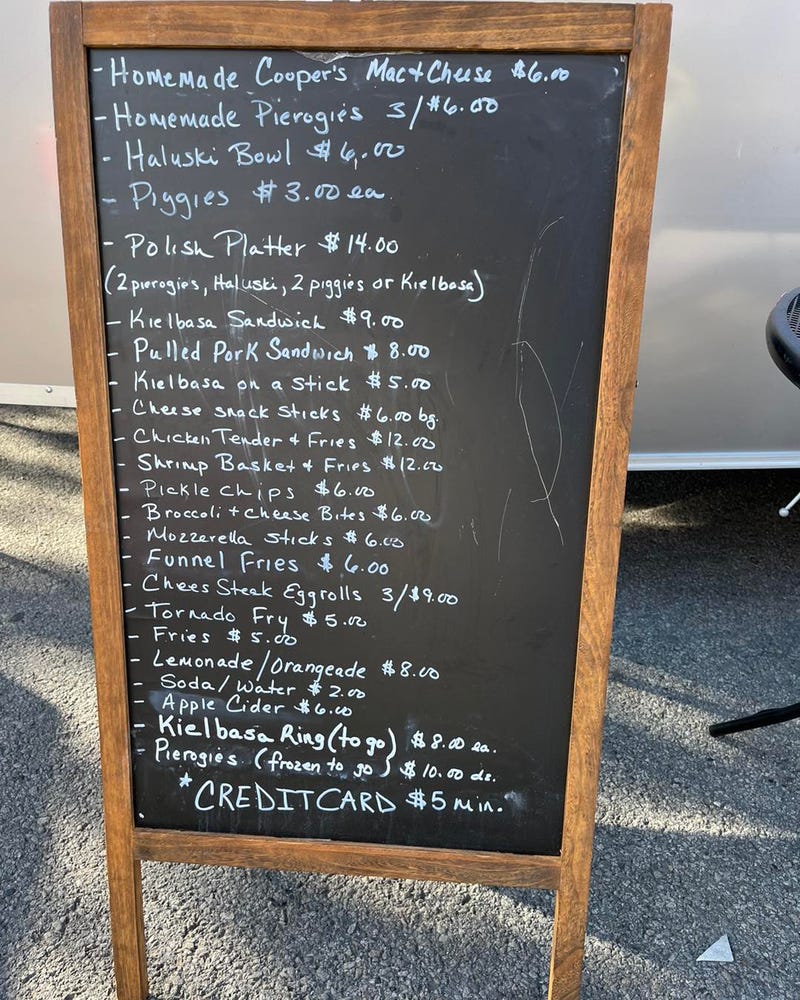 - Homemade Cooper's Mac+Cheese $6.00
- Homemade Pierogies 3/$6.00
- Haluski Bowl $6.00
- Piggies $3.00 ea
- Polish Platter $14.00
(2 pierogies, Haluski, 2 piggies or Kielbasa)
- Kielbasa Sandwich $9.00
- Pulled Pork Sandwich $8.00
- Kielbasa on a Stick $5.00
- Cheese snack sticks $6.00 bg.
- Chicken Tender + Fries $12.00
- Shrimp Basket + Fries $12.00
- Pickle Chips $6.00
- Broccoli + Cheese Bites $6.00
- Mozzerella Sticks $6.00
- Funnel Fries $6.00
- Chees Steak Eggrolls 3/$9.00
- Tornado Fry $5.00
- Fries $5.00
- Lemonade/Orangeade $8.00
- Soda/Water $2.00
- Apple Cider $6.00
- Kielbasa Ring (to go) $8.00 ea.
- Pierogies (frozen to go) $10.00 dz.
* CREDITCARD $5 min.